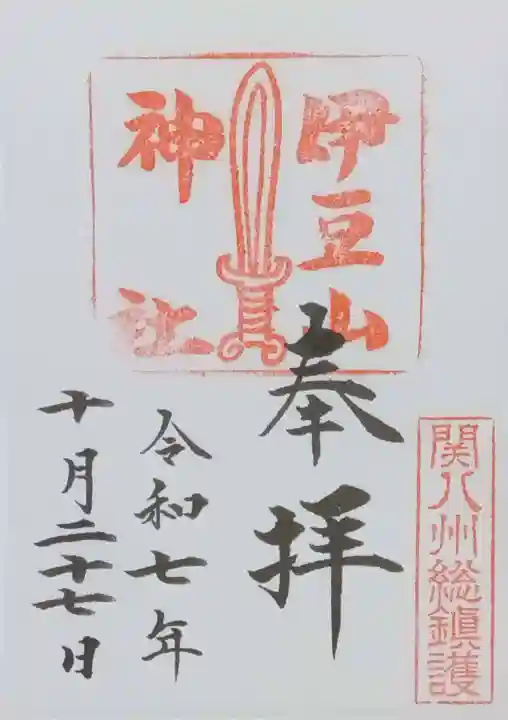 関八州総鎮護
伊豆山
神社
奉拝
令和七年
十月二十七日